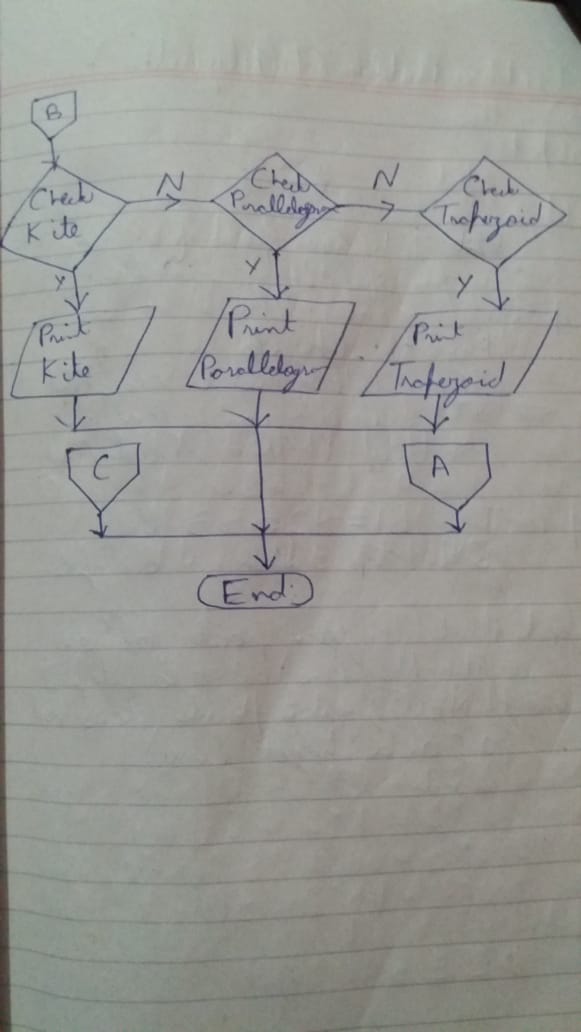 B
Check
Kite
N
Check
Parallelogram
N
Check
Trapezoid
Y
Y
Y
Print
Kite
Print
Parallelogram
Print
Trapezoid
C
A
End